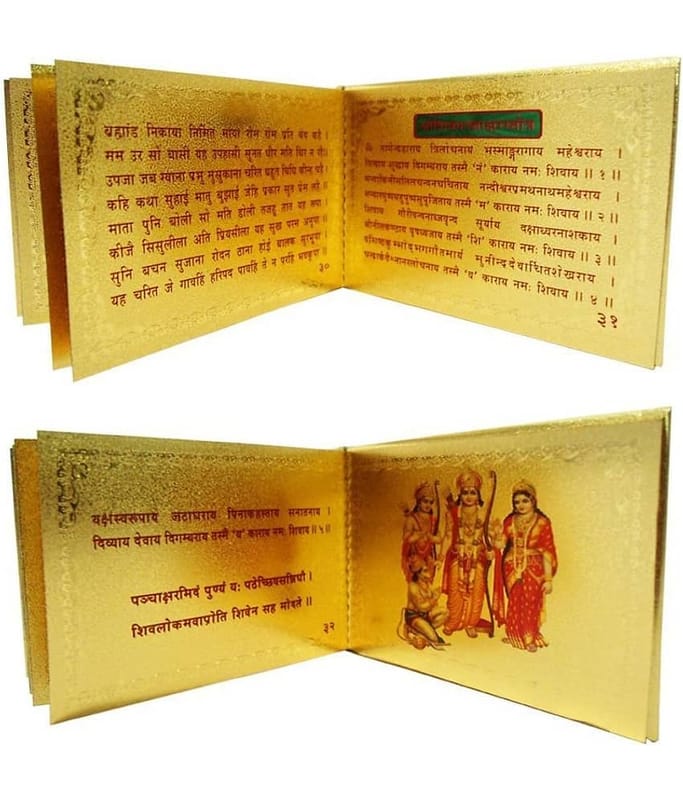 ब्रह्मांड निकाया निर्मित माया रोम रोम प्रति बेद कहे ।
मम उर सो बासी यह उपहासी सुनत धीर मति थिर न
उपजा जब ग्याना प्रभु मुसुकाना चरित बहुत बिधि कीन्ह चहे
कहि कथा सुहाई मातु बुझाई जेहि प्रकार सुत प्रेम लहे
माता पुनि बोली सो मति डोली तजहु तात यह रूपा
कीजै सिसुलीला अति प्रियसीला यह सुख परम अनूपा
सुनि बचन सुजाना रोदन ठाना होई बालक सुरभूपा
यह चरित जे गावहिं हरिपद पावहिं ते न परहिं भवकूपा
३०
त्रिलोचनाय भस्माङ्गरागाय महेश्वराय ।
दिगम्बराय तस्मै 'नं' काराय नमः शिवाय ॥ १ ॥
नन्दीश्वरप्रमथनाथमहेश्वराय ।
तस्मै 'म' काराय नमः शिवाय ॥ २ ॥
शिवाय गौरीवदनाब्जवृन्द सूर्याय दक्षाध्वरनाशकाय ।
वृषध्वजाय तस्मै 'शि' काराय नमः शिवाय ॥ ३ ॥
मुनीन्द्रदेवार्चितशेखराय ।
तस्मै 'व' काराय नमः शिवाय ॥ ४ ॥
३१
यक्षस्वरूपाय जटाधराय पिनाकहस्ताय सनातनाय ।
दिव्याय देवाय दिगम्बराय तस्मै 'य' काराय नमः शिवाय ॥ ५ ॥
पञ्चाक्षरमिदं पुण्यं यः पठेच्छिवसन्निधौ ।
शिवलोकमवाप्नोति शिवेन सह मोदते ॥
३२